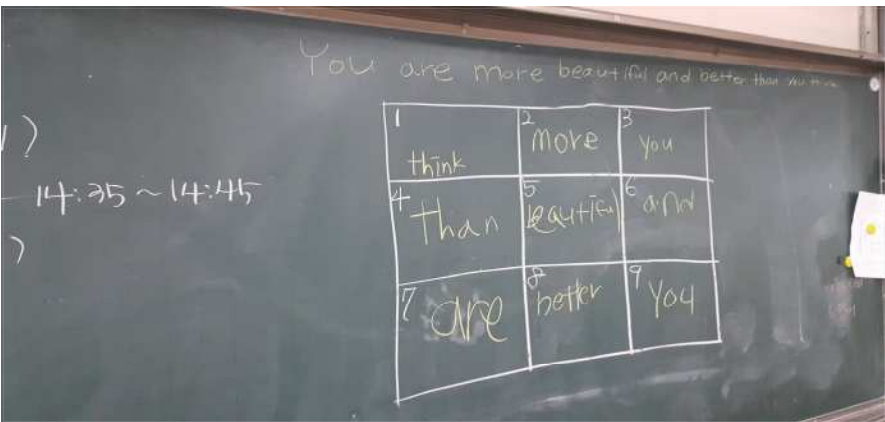 You are more beautiful and better than you think
14:35 ~ 14:45
1 think
2 more
3 you
4 than
5 beautiful
6 and
7 are
8 better
9 you